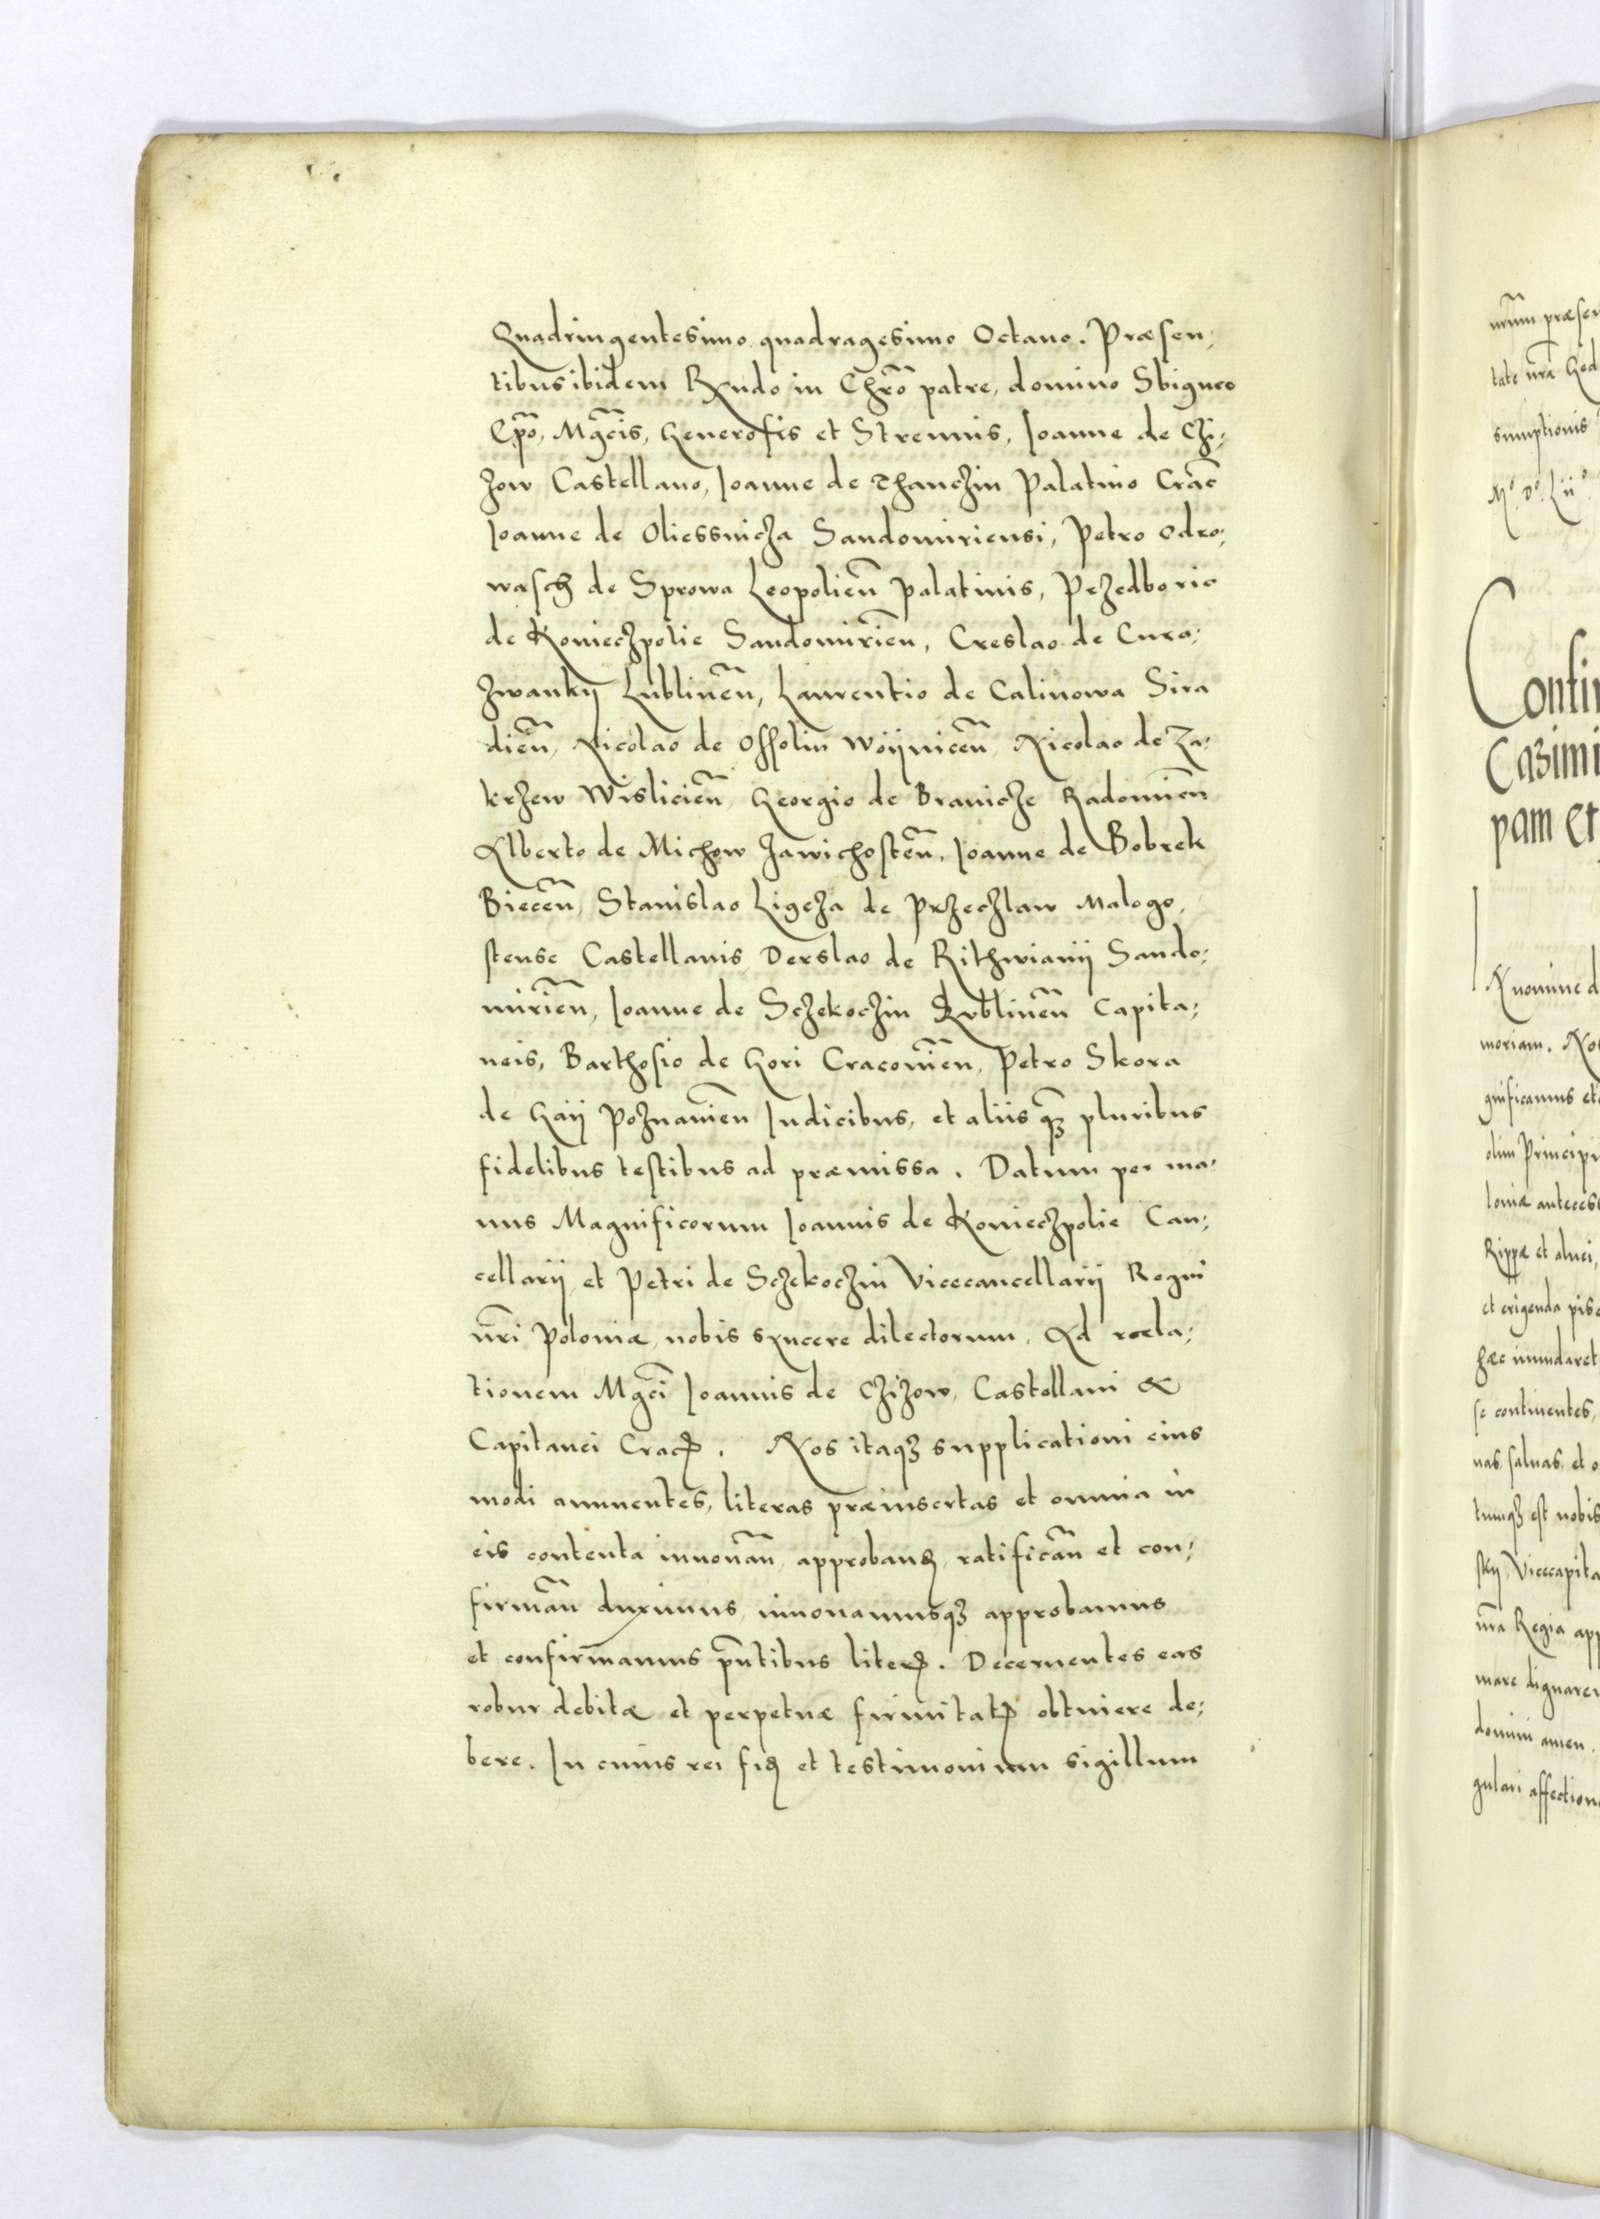 Quadringentesimo quadragesimo Octauo. Præsen,
tibus ibidem Rxndo in Chrō patre, domino Sbigneo
Ep̄o, Mg̅cis, Generosis et Strennis, Ioanne de Chi,
zow Castellano, Ioanne de Thanczin Palatino Crac̄
Ioanne de Oliessnicza Sandomiriensi, Petro Odro,
wasch de Sprowa Leopolien̄ palatinis, Przedborio
de Konieczpolie Sandomirien̄, Creslao de Cura,
zwanky Lublinen̄, Laurentio de Calinowa Sira
dien̄, Nicolao de Ossolin Woÿnicen̄, Nicolao de Za,
krzew Wislicien̄ Georgio de Branicze Radomien̄
Alberto de Michow Zawichosten̄, Ioanne de Bobrek
Biecen̄, Stanislao Ligeza de Przeczlaw Malogo,
stense Castellanis, Derslao de Rithwianÿ Sando,
mirien̄, Ioanne de Sczekoczin Lublinen̄ Capita,
neis, Barthosio de Gori Cracouien̄, Petro Skora
de Gaÿ Poznanien̄ Iudicibus, et aliis qʒ pluribus
fidelibus testibus ad præmissa. Datum per ma,
nus Magnificorum Ioannis de Konieczpolie Can,
cellarÿ et Petri de Sczekoczin Vicecancellarÿ Regni
nr̄i Poloniæ, nobis sÿncere dilectorum. Ad rela,
tionem Mg̅ci Ioannis de Czizow, Castellani &
Capitanei Crac. Nos itaqʒ supplicationi eius
modi annuentes, literas præinsertas et omnia in
eis contenta innouan̄, approband, ratifican̄ et con,
firman̄ duximus, innouamusqʒ approbamus
et confirmamus pn̄tibus literꝭ. Decernentes eas
robur debitæ et perpetuæ firmitatꝭ obtinere de,
bere. In cuius rei fid et testimonium sigillum
nr̄um præsen
tate nr̄æ Ged
sumptionis
Mᵒ. Dᵒ. Lijᵒ.
Confir
Cazimi
pam et
N nomine d
moriam. Nos
gnificamus et
olim Principi
loniæ antecess
Rippæ et aluei,
et erigenda pisc
hæc inundaret
se continentes,
nas, saluas, et o
tumqʒ est nobis
sky, Vicecapita
nr̄a Regia app
mare dignarem
domini amen.
gulari affectione